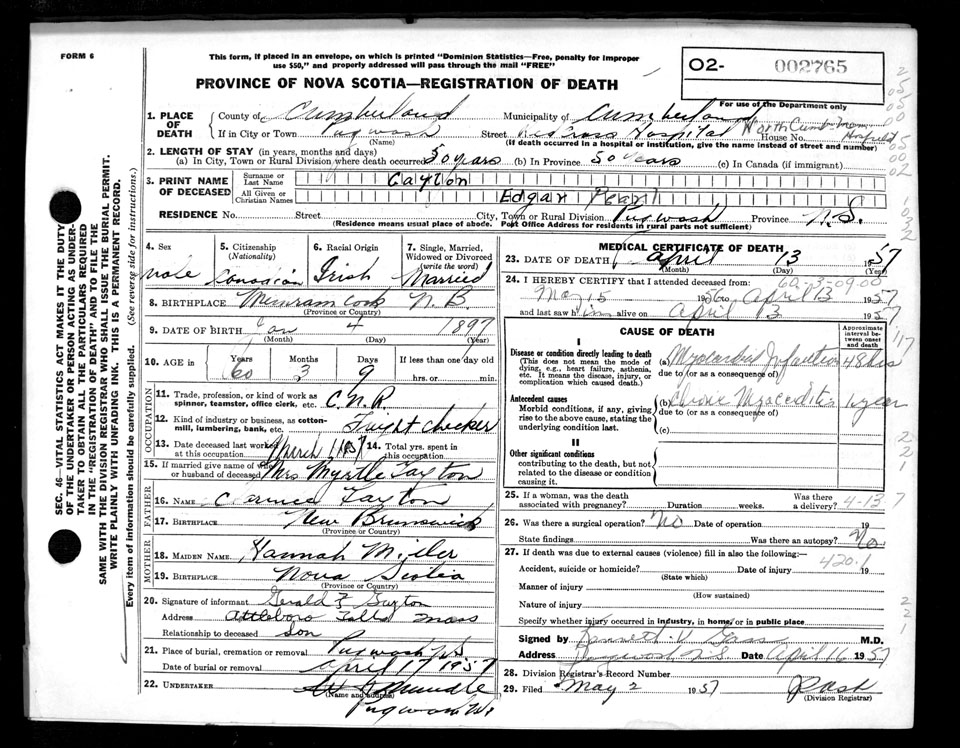 FORM 6
This form, if placed in an envelope, on which is printed "Dominion Statistics—Free, penalty for improper
use $50," and properly addressed will pass through the mail "FREE"
PROVINCE OF NOVA SCOTIA—REGISTRATION OF DEATH
O2- 002765
For use of the Department only
1. PLACE OF DEATH
County of Cumberland Municipality of Cumberland
If in City or Town Pugwash Street Red Cross Hospital House No.
North Cumb. Mem. Hospital
(Name) (If death occurred in a hospital or institution, give the name instead of street and number)
2. LENGTH OF STAY (in years, months and days)
(a) In City, Town or Rural Division where death occurred 50 years (b) In Province 50 years (c) In Canada (if immigrant)
3. PRINT NAME OF DECEASED
Surname or Last Name Gayton
All Given or Christian Names Edgar Pearl
RESIDENCE No. Street City, Town or Rural Division Pugwash Province N.S.
(Residence means usual place of abode. Post Office Address for residents in rural parts not sufficient)
4. Sex male
5. Citizenship (Nationality) Canadian
6. Racial Origin Irish
7. Single, Married, Widowed or Divorced (write the word) Married
8. BIRTHPLACE Memramcook N.B.
(Province or Country)
9. DATE OF BIRTH Jan 4 1897
(Month) (Day) (Year)
10. AGE in Years Months Days If less than one day old
60 3 9 hrs. or min.
OCCUPATION
11. Trade, profession, or kind of work as spinner, teamster, office clerk, etc. C.N.R.
12. Kind of industry or business, as cotton-mill, lumbering, bank, etc. Freight checker
13. Date deceased last worked at this occupation March 1957
14. Total yrs. spent in this occupation
15. If married give name of wife or husband of deceased Mrs Myrtle Gayton
FATHER
16. NAME Gayton
17. BIRTHPLACE New Brunswick
(Province or Country)
MOTHER
18. MAIDEN NAME Hannah Miller
19. BIRTHPLACE Nova Scotia
(Province or Country)
20. Signature of informant Gerald F Gayton
Address Attleboro Falls Mass
Relationship to deceased Son
21. Place of burial, cremation or removal Pugwash N.S.
Date of burial or removal April 17 1957
22. UNDERTAKER Mundle
(Name and address)
Pugwash N.S.
MEDICAL CERTIFICATE OF DEATH
23. DATE OF DEATH April 13 1957
(Month) (Day) (Year)
60-3-09.00
24. I HEREBY CERTIFY that I attended deceased from:
May 15 1956 to April 13 1957
and last saw him alive on April 13 1957
CAUSE OF DEATH
Approximate interval between onset and death
I
Disease or condition directly leading to death (a) Myocardial Infarction 48 hrs
(This does not mean the mode of dying, e.g., heart failure, asthenia, etc. It means the disease, injury, or complication which caused death.)
due to (or as a consequence of)
Antecedent causes (b) Chronic Myocarditis 1 year
Morbid conditions, if any, giving rise to the above cause, stating the underlying condition last.
due to (or as a consequence of)
(c)
II
Other significant conditions
contributing to the death, but not related to the disease or condition causing it.
25. If a woman, was the death associated with pregnancy? Duration weeks. Was there a delivery?
4-13-7
26. Was there a surgical operation? No Date of operation 19
State findings Was there an autopsy? No
27. If death was due to external causes (violence) fill in also the following:—
Accident, suicide or homicide? Date of injury 19
420.1
(State which)
Manner of injury
(How sustained)
Nature of injury
Specify whether injury occurred in industry, in home, or in public place
Signed by Kenneth V. Gass M.D.
Address Pugwash N.S. Date April 16 1957
28. Division Registrar's Record Number
29. Filed May 2 1957
(Division Registrar)
SEC. 46-VITAL STATISTICS ACT MAKES IT THE DUTY
OF THE UNDERTAKER OR PERSON ACTING AS UNDERTAKER TO OBTAIN ALL THE PARTICULARS REQUIRED
IN THE "REGISTRATION OF DEATH" AND TO FILE THE
SAME WITH THE DIVISION REGISTRAR WHO SHALL ISSUE THE BURIAL PERMIT.
WRITE PLAINLY WITH UNFADING INK. THIS IS A PERMANENT RECORD.
Every item of information should be carefully supplied. (See reverse side for instructions.)